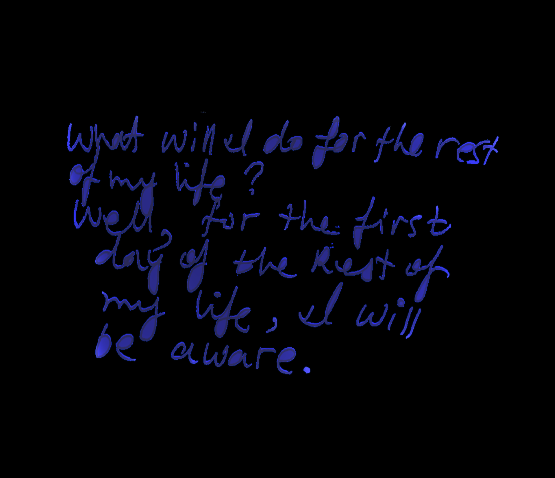 What will I do for the rest
of my life?
Well, for the first
day of the Rest of
my life, I will
be aware.